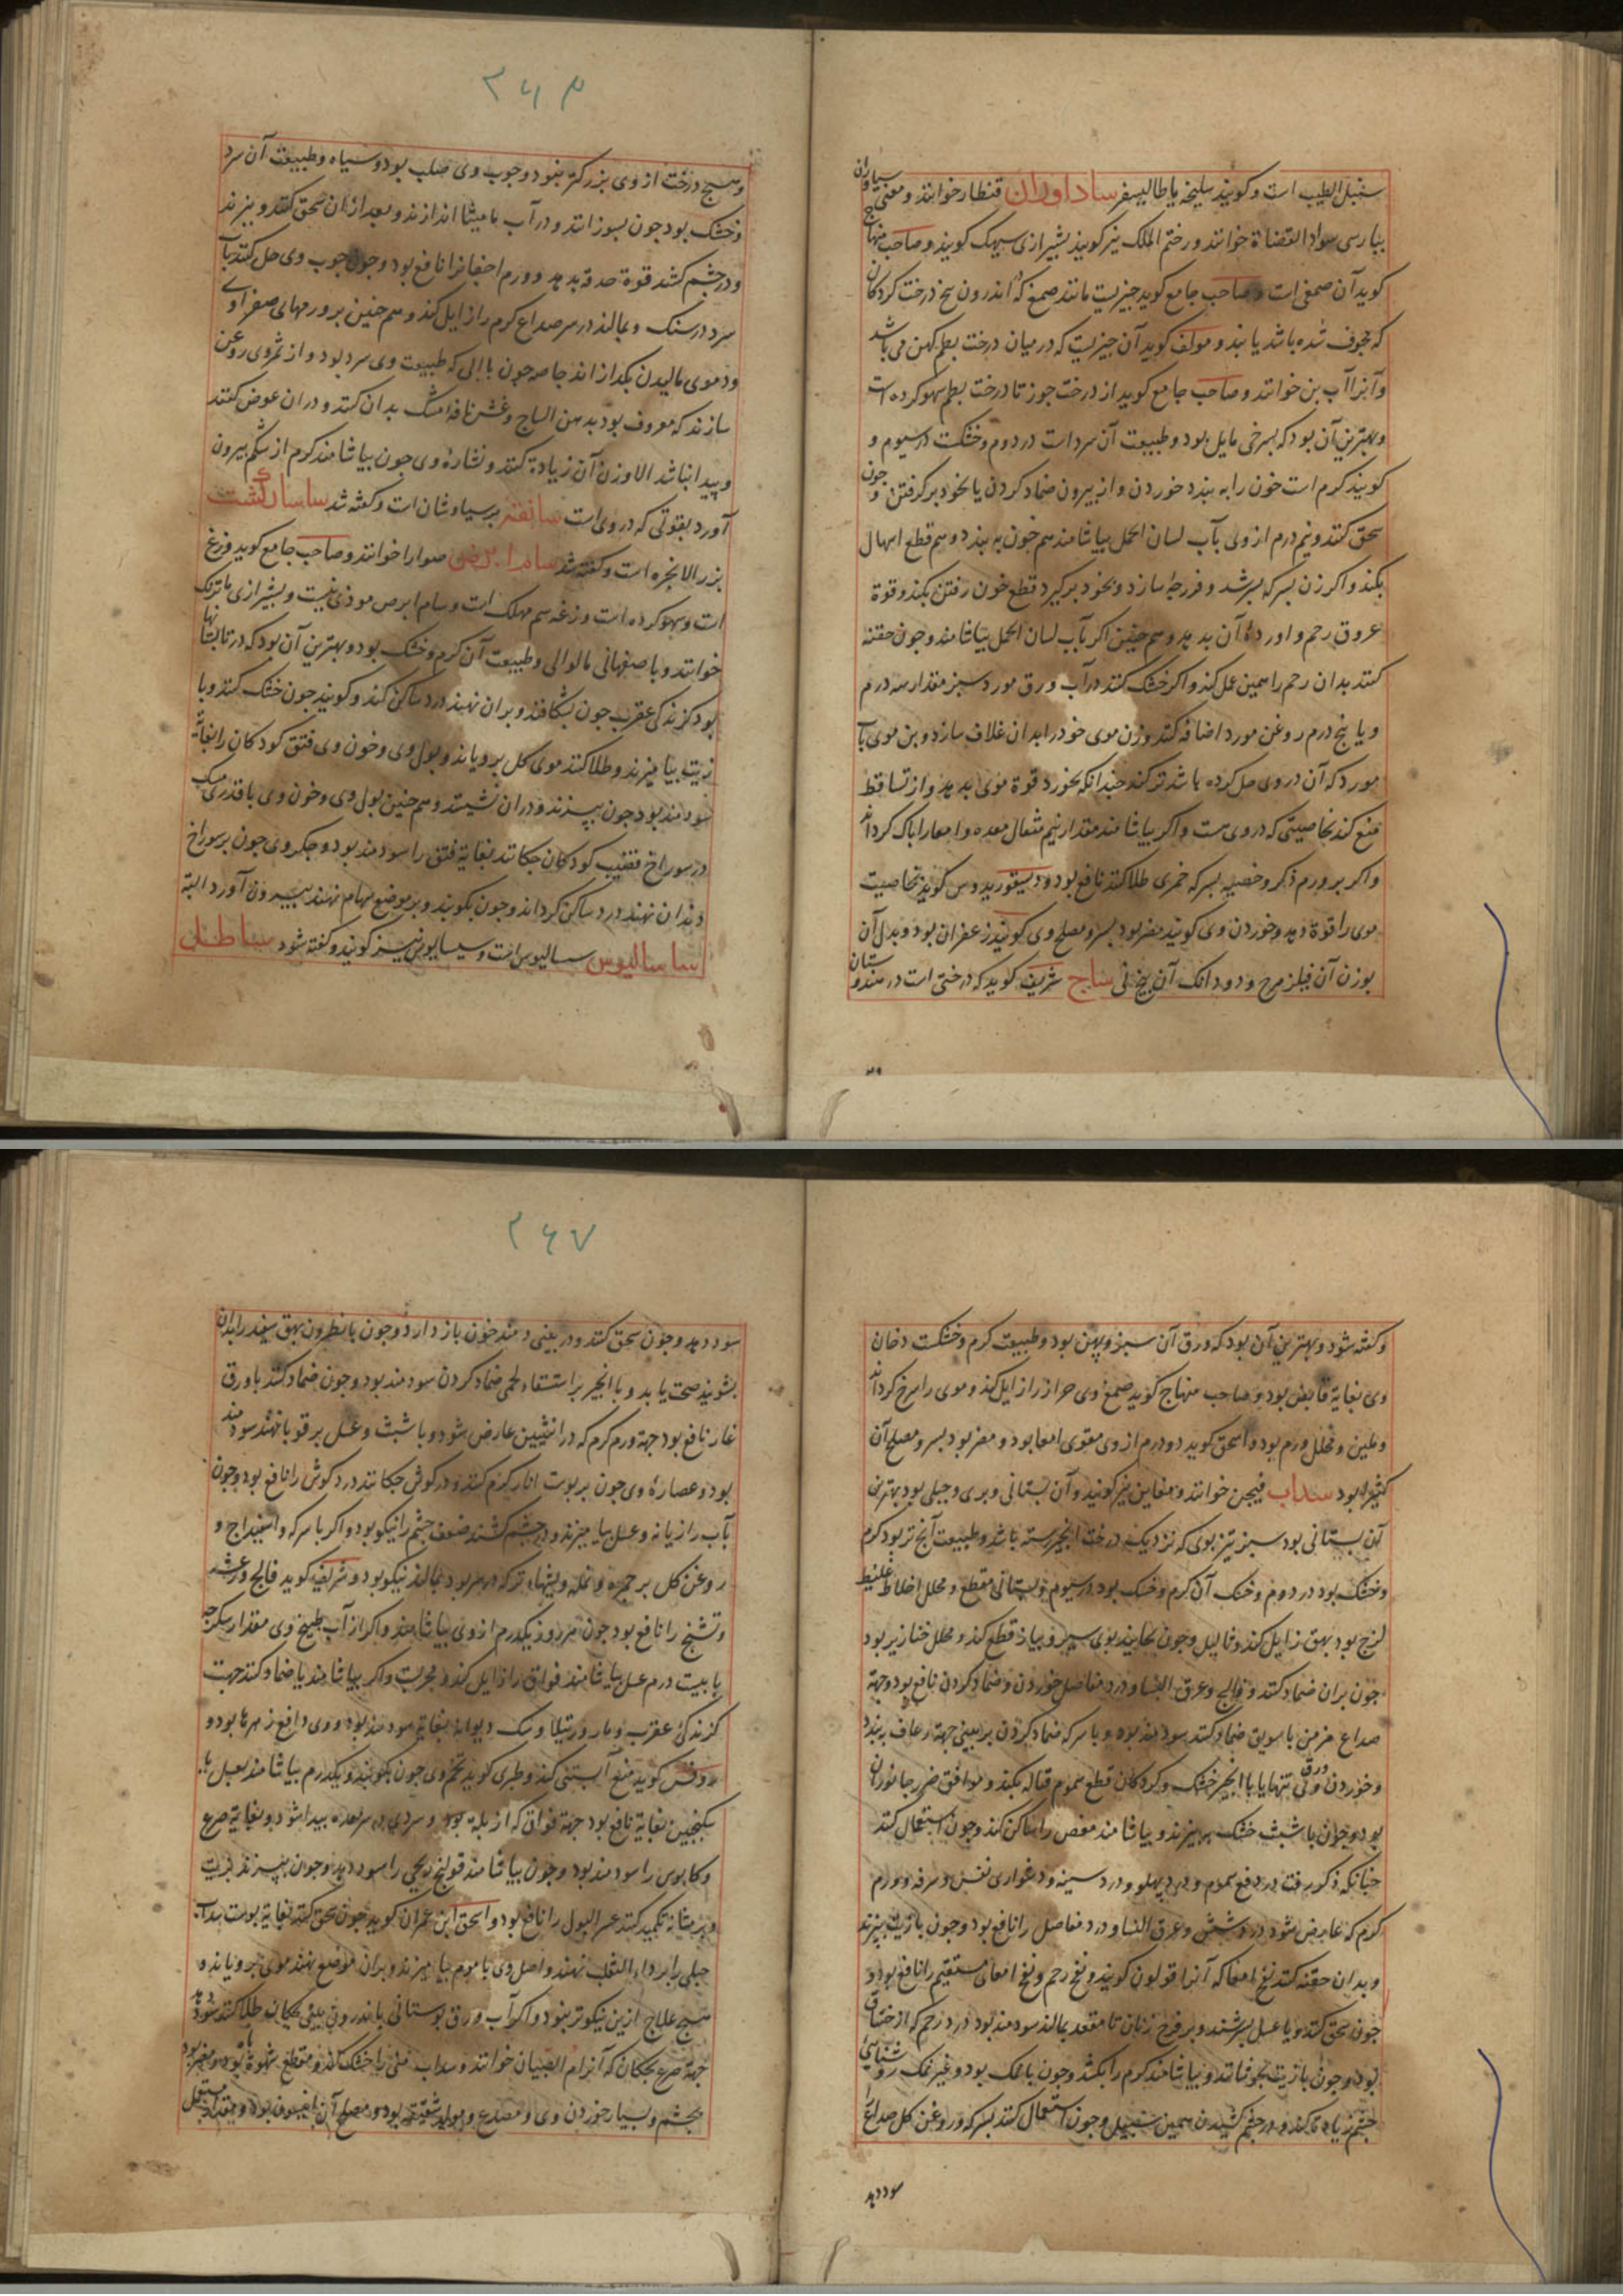 سنبل الطیب است و کویند سلیخه یا طالیسفر ساداوران قنطار خوانند و معنی سیاوران
بپارسی سواد القضاة خوانند و ختم الملک نیز کویند بشیرازی سیهک کویند و صاحب منهاج
کوید آن صمغی است و صاحب جامع کوید چیزیست مانند صمغ که اندرون بیخ درخت کردکان
که مجوف شده باشد یابند و مولف کوید آن چیزیست که در میان درخت بطم کهن می باشد
وآنرا آب بن خوانند و صاحب جامع کوید از درخت جوز تا درخت بطم سهو کرده است
و بهترین آن بود که بسرخی مایل بود و طبیعت آن سرد است در دوم و خشکست در سیوم و
کویند کرم است خون را به بندد خوردن و از بیرون ضماد کردن یا بخود برکرفتن و چون
سحق کنند و نیم درم از وی بآب لسان الحمل بیاشامند هم خون به بندد و هم قطع اسهال
بکند و اکر زن بسرکه بسرشد و فرزجه سازد و بخود برکیرد قطع خون رفتن بکند و قوة
عروق رحم و اورده آن بدهد و هم چنین اکر بآب لسان الحمل بیاشامند و چون حقنه
کنند بدان رحم را همین عمل کند و اکر خشک کنند در آب ورق مورد سبز مقدار سه درم
و یا پنج درم روغن مورد اضافه کنند و زن موی خود را بدان غلاف سازد و بن موی بآب
مورد که آن در وی حل کرده باشد ترکند چندانکه بخورد قوة موی بدهد و از تساقط
منع کند بخاصیتی که در وی هست و اکر بیاشامند مقدار نیم مثقال معده و امعا را پاک کرداند
و اکر بر ورم ذکر و خصیه بسرکه خمری طلا کنند نافع بود و دیسقوریدوس کوید بخاصیت
موی را قوة دهد و خوردن وی کویند مضر بود بسر و مصلح وی کویند زعفران بود و بدل آن
بوزن آن فیلزهرج و دو دانک آن بیخ نی ساج شریف کوید که درختی است در هندوستان
و هیچ درخت از وی بزرکتر نبود و چوب وی صلب بود و سیاه و طبیعت آن سرد
و خشک بود چون بسوزانند و در آب مامیثا اندازند و بعد از آن سحق کنند و بپزند
و در چشم کشند قوة حدقه بدهد و ورم اجفانرا نافع بود و چون چوب وی حل کنند بآب
سرد در سنک و بمالند در سر صداع کرم را زایل کند و هم چنین بر ورمهای صفراوی
و دموی مالیدن بکدازاند خاصه چون با آبی که طبیعت وی سرد بود و از ثمر وی روغن
سازند که معروف بود بدهن الساج و غش نافه مشک بدان کنند و در آن عوض کنند
و پیدا نباشد الا وزن آن زیاده کنند و نشاره وی چون بیاشامند کرم از شکم بیرون
آورد بقوتی که در وی است سانقنه پرسیاوشان است و کفته شد ساسارکشت
بزر الانجره است و کفته شد سام ابرص صوار خوانند و صاحب جامع کوید وزغ
است و سهو کرده است وزغه سم مهلک است و سام ابرص موذی نیست و بشیرازی ماترنک
خوانند و باصفهانی مالوالی و طبیعت آن کرم و خشک بود و بهترین آن بود که در تابستانها
بود کزندکی عقرب چون بشکافند و بران نهند درد ساکن کند و کویند چون خشک کنند و با
زیت بیامیزند و طلا کنند موی کل برویاند و بول وی و خون وی فتق کودکان را بغایة
سودمند بود چون بپزند و در آن نشینند و هم چنین بول وی و خون وی با قدری مسک
در سوراخ قضیب کودکان چکانند بغایة فتق را سودمند بود و جکر وی چون بر سوراخ
دندان نهند درد ساکن کرداند و چون بکوبند و بر موضع سهام نهند بیرون آورد البته
ساسالیوس سسالیوس است و سیسالیوس نیز کویند و کفته شود ساطل
۲۶۷
و کفته شود و بهترین آن بود که ورق آن سبز و پهن بود و طبیعت کرم و خشکست دخان
وی بغایة قابض بود و صاحب منهاج کوید صمغ وی حزاز زایل کند و موی را سرخ کرداند
و ملین و محلل ورم بود و اسحق کوید دو درم از وی مقوی امعا بود و مضر بود بسر و مصلح آن
کثیرا بود سداب فیجن خوانند و مفاین نیز کویند و آن بستانی و بری و جبلی بود بهترین
آن بستانی بود سبز تیز بوی که نزدیک درخت انجیر رسته باشد و طبیعت آنچ تر بود کرم
و خشک بود در دوم و خشک آن کرم و خشک بود در سیوم و بستانی مقطع و محلل اخلاط غلیظ
لزج بود بهق زایل کند و ثالیل و چون بخایند بوی سیر و پیاز قطع کند و محلل خنازیر بود
چون بران ضماد کنند و فالج و عرق النسا و درد مفاصل خوردن و ضماد کردن نافع بود و جهة
صداع مزمن با سویق ضماد کنند سودمند بود و با سرکه ضماد کردن بر بینی جهة رعاف ببندد
و خوردن ورق وی تنها یا با انجیر خشک و کردکان قطع سموم قتاله بکند و موافق ضرر جانوران
بود و چون با شبث خشک بپزند و بیاشامند مغص را ساکن کند و چون استعمال کنند
چنانکه ذکر رفت در دفع سموم و درد پهلو و درد سینه و دشواری نفس و سرفه و ورم
کرم که عارض شود در شش و عرق النسا و درد مفاصل را نافع بود و چون با زیت بپزند
و بدان حقنه کنند نفخ امعا که آنرا قولون کویند و نفخ رحم و نفخ امعای مستقیم را نافع بود و
چون سحق کنند و با عسل بسرشند و بر فرج زنان تا مقعد بمالند سودمند بود درد رحم که از اختناق
بود و چون با زیت بجوشانند و بیاشامند کرم را بکشد و چون با نمک بود و غیر نمک روشنایی
چشم زیاده کند و در چشم کشیدن همین سبیل و چون استعمال کنند بسرکه و روغن کل صداع را
سود دهد
سود دهد و چون سحق کنند و در بینی دمند خون باز دارد و چون با نطرون بهق سفید را بدان
بشویند صحت یابد و با انجیر بر استسقاء لحمی ضماد کردن سودمند بود و چون ضماد کنند با ورق
غار نافع بود جهة ورم کرم که در انثیین عارض شود و با شبث و عسل بر قوبا نهند سودمند
بود و عصاره وی چون بر پوست انار کرم کنند و در کوش چکانند درد کوش را نافع بود و چون
بآب رازیانه و عسل بیامیزند و در چشم کشند ضعف چشم را نیکو بود و اکر با سرکه و اسفیداج و
روغن کل بر حمره و نمله و ریشهاء تر که در سر بود بمالند نیکو بود و شریف کوید فالج و رعشه
و تشنج را نافع بود چون هر روز یکدرم از وی بیاشامند و اکر از آب طبیخ وی مقدار سکرجه
با بیست درم عسل بیاشامند فواق را زایل کند و مجربست و اکر بیاشامند یا ضماد کنند جهت
کزندکی عقرب و مار و رتیلا و سک دیوانه بغایة سودمند بود و وی دافع زهرها بود و
روفس کوید منع آبستنی کند و طبری کوید تخم وی چون بکوبند و یکدرم بیاشامند بعسل یا
سکنجبین بغایة نافع بود جهة فواق که از بلة بود و سردی در معده پیدا شود و بغایة صرع
و کابوس را سودمند بود و چون بیاشامند قولنج ریحی را سود دهد و چون بپزند بزیت
و بر مثانه تکمید کنند عسر البول را نافع بود و اسحق ابن عمران کوید چون سحق کنند بغایة پوست سداب
جبلی را بر داء الثعلب نهند و اصل وی با موم بیامیزند و بران موضع نهند موی برویاند و
هیچ علاج ازین نیکوتر نبود و اکر آب ورق بوستانی باندرون بینی بچکان طلا کنند سود دهد
جهة صرع بچکان که آنرا ام الصبیان خوانند و سداب منی را خشک کند و مقطع شهوة باه بود و مضر بود
بچشم و بسیار خوردن وی مصدع و مولد شقیقه بود و مصلح آن انیسون بود و مقدار مستعمل